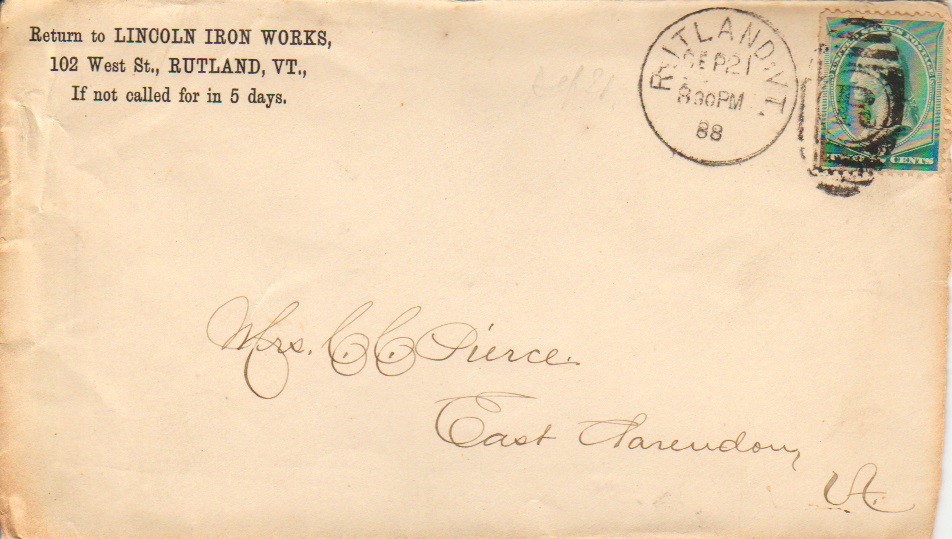 Return to LINCOLN IRON WORKS,
102 West St., RUTLAND, VT.,
If not called for in 5 days.
RUTLAND, VT.
SEP 21
8 30 PM
88
UNITED STATES POSTAGE
TWO CENTS
Mrs. C. C. Pierce.
East Clarendon,
Vt.